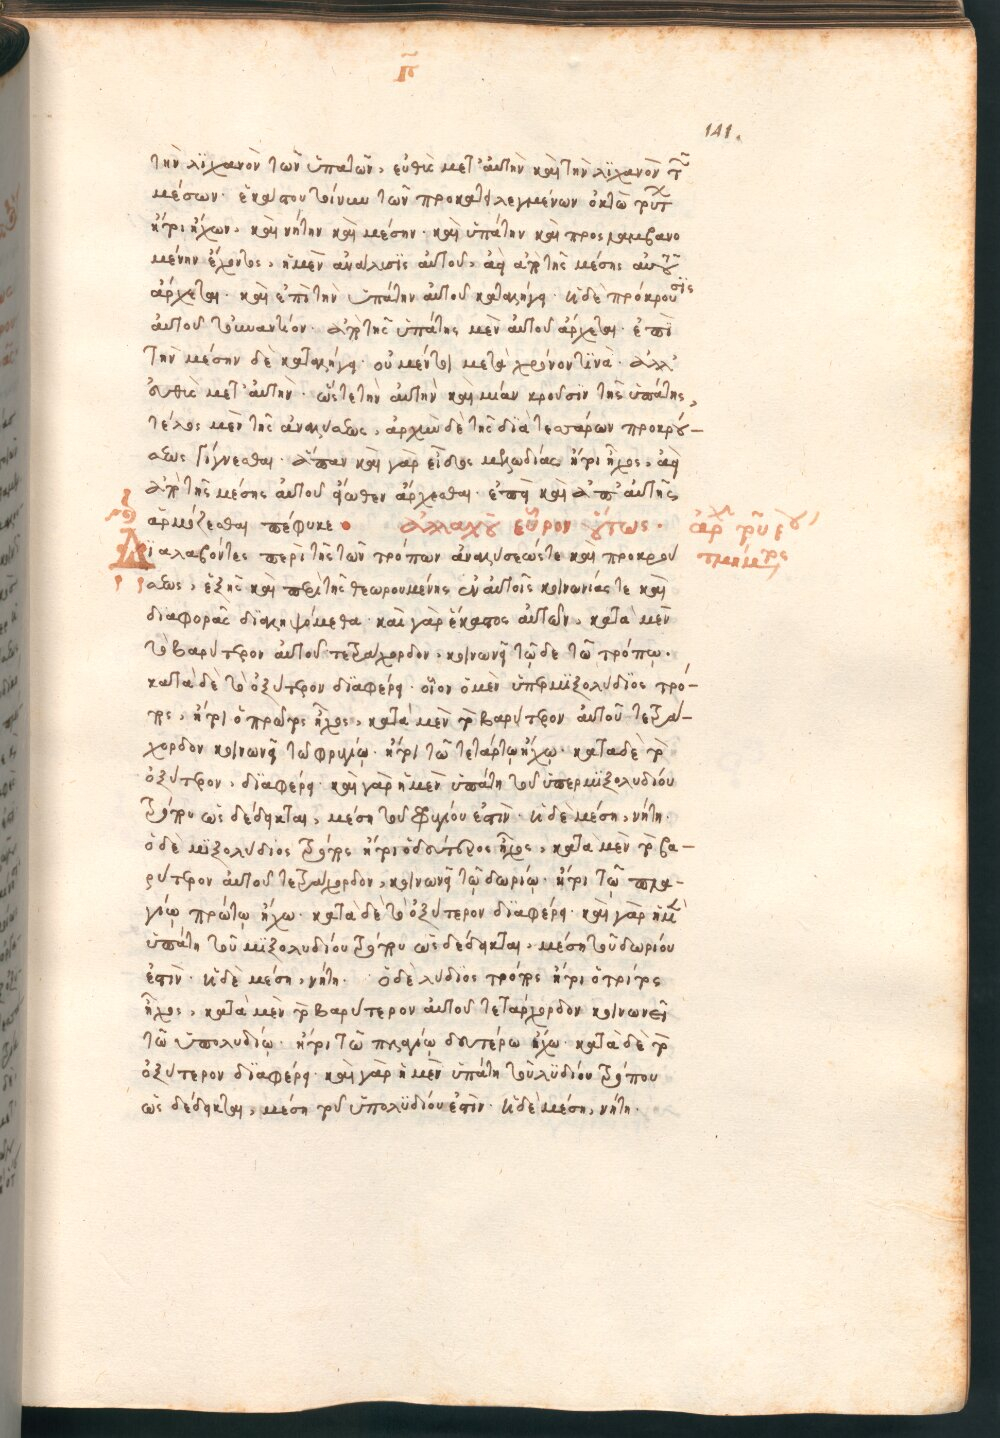 π̃
141.
τὴν λϊχανὸν τῶν ὑπατῶν, εὐθὺς μετ' αὐτὴν καὶ τὴν λϊχανὸν τῶν
μέσων· ἑκάστου τοίνυν τῶν προκατειλεγμένων ὀκτὼ
ἤτοι ἤχων, καὶ νήτην καὶ μέσην· καὶ ὑπάτην καὶ προσλαμβανο
μένην ἔχοντος, ἡ μὲν ἀνάλυσϊς αὐτοῦ, ἀεὶ ἀπὸ τῆς μέσης αὐτοῦ
ἄρχεται· καὶ ἐπὶ τὴν ὑπάτην αὐτοῦ καταλήγει· ἡ δὲ πρόκρουσϊς
αὐτοῦ τοὐναντίον· ἀπὸ τῆς ὑπάτης μὲν αὐτοῦ ἄρχεται· ἐπὶ
τὴν μέσην δὲ καταλήγει· οὐ μέντοι μετὰ χρόνον τϊνὰ· ἀλλ'
εὐθὺς μετ' αὐτὴν· ὥστε τὴν αὐτὴν καὶ μίαν κροῦσϊν τῆς ὑπάτης,
τέλος μὲν τῆς ἀναλύσεως, ἀρχὴν δὲ τῆς διὰ τεσσάρων προκρού–
σεως γίγνεσθαι· ἅπαν καὶ γὰρ εἶδος μελωδίας ἤτοι ἦχος, ἀεὶ
ἀπὸ τῆς μέσης αὐτοῦ εἴωθεν ἄρχεσθαι· ἐπεὶ καὶ ἀπ' αὐτῆς
ἁρμόζεσθαι πέφυκε ἀλλαχοῦ εὗρον οὕτως· ἀρχὴ τοῦ
Δϊαλαβόντες περὶ τῆς τῶν τρόπων ἀναλύσεώς τε καὶ προκρού
σεως, ἑξῆς καὶ περὶ τῆς θεωρουμένης ἐν αὐτοῖς κοινωνίας τε καὶ
διαφορᾶς διαληψόμεθα· καὶ γὰρ ἕκαστος αὐτῶν, κατὰ μὲν
τὸ βαρύτερον αὐτοῦ τετράχορδον, κοινωνεῖ τῷδε τῷ τρόπῳ·
κατὰ δὲ τὸ ὀξύτερον διαφέρει· οἷον ὁ μὲν ὑπερμϊξολύδϊος τρό–
πος, ἤτοι ὁ πρῶτος ἦχος, κατὰ μὲν τὸ βαρύτερον αὐτοῦ τετρά–
χορδον κοινωνεῖ τῷ φρυγίῳ· ἤτοι τῷ τετάρτῳ ἤχῳ· κατὰ δὲ τὸ
ὀξύτερον, διαφέρει· καὶ γὰρ ἡ μὲν ὑπάτη τοῦ ὑπερμϊξολυδίου
τρόπου ὡς δέδεικται, μέση τοῦ φρυγίου ἐστὶν· ἡ δὲ μέση, νήτη·
ὁ δὲ μϊξολύδιος τρόπος ἤτοι ὁ δεύτερος ἦχος, κατὰ μὲν τὸ βα–
ρύτερον αὐτοῦ τετράχορδον, κοινωνεῖ τῷ δωρίῳ· ἤτοι τῷ πλα–
γίῳ πρώτῳ ἤχῳ· κατὰ δὲ τὸ ὀξύτερον διαφέρει· καὶ γὰρ ἡ μὲν
ὑπάτη τοῦ μϊξολυδίου τρόπου ὡς δέδεικται, μέση τοῦ δωρίου
ἐστὶν· ἡ δὲ μέση, νήτη· ὁ δὲ λύδϊος τρόπος ἤτοι ὁ τρίτος
ἦχος, κατὰ μὲν τὸ βαρύτερον αὐτοῦ τετράχορδον κοινωνεῖ
τῷ ὑπολυδίῳ· ἤτοι τῷ πλαγίῳ δευτέρῳ ἤχῳ· κατὰ δὲ τὸ
ὀξύτερον διαφέρει· καὶ γὰρ ἡ μὲν ὑπάτη τοῦ λϋδίου τρόπου
ὡς δέδεικται, μέση τοῦ ὑπολϋδίου ἐστὶν· ἡ δὲ μέση, νήτη·